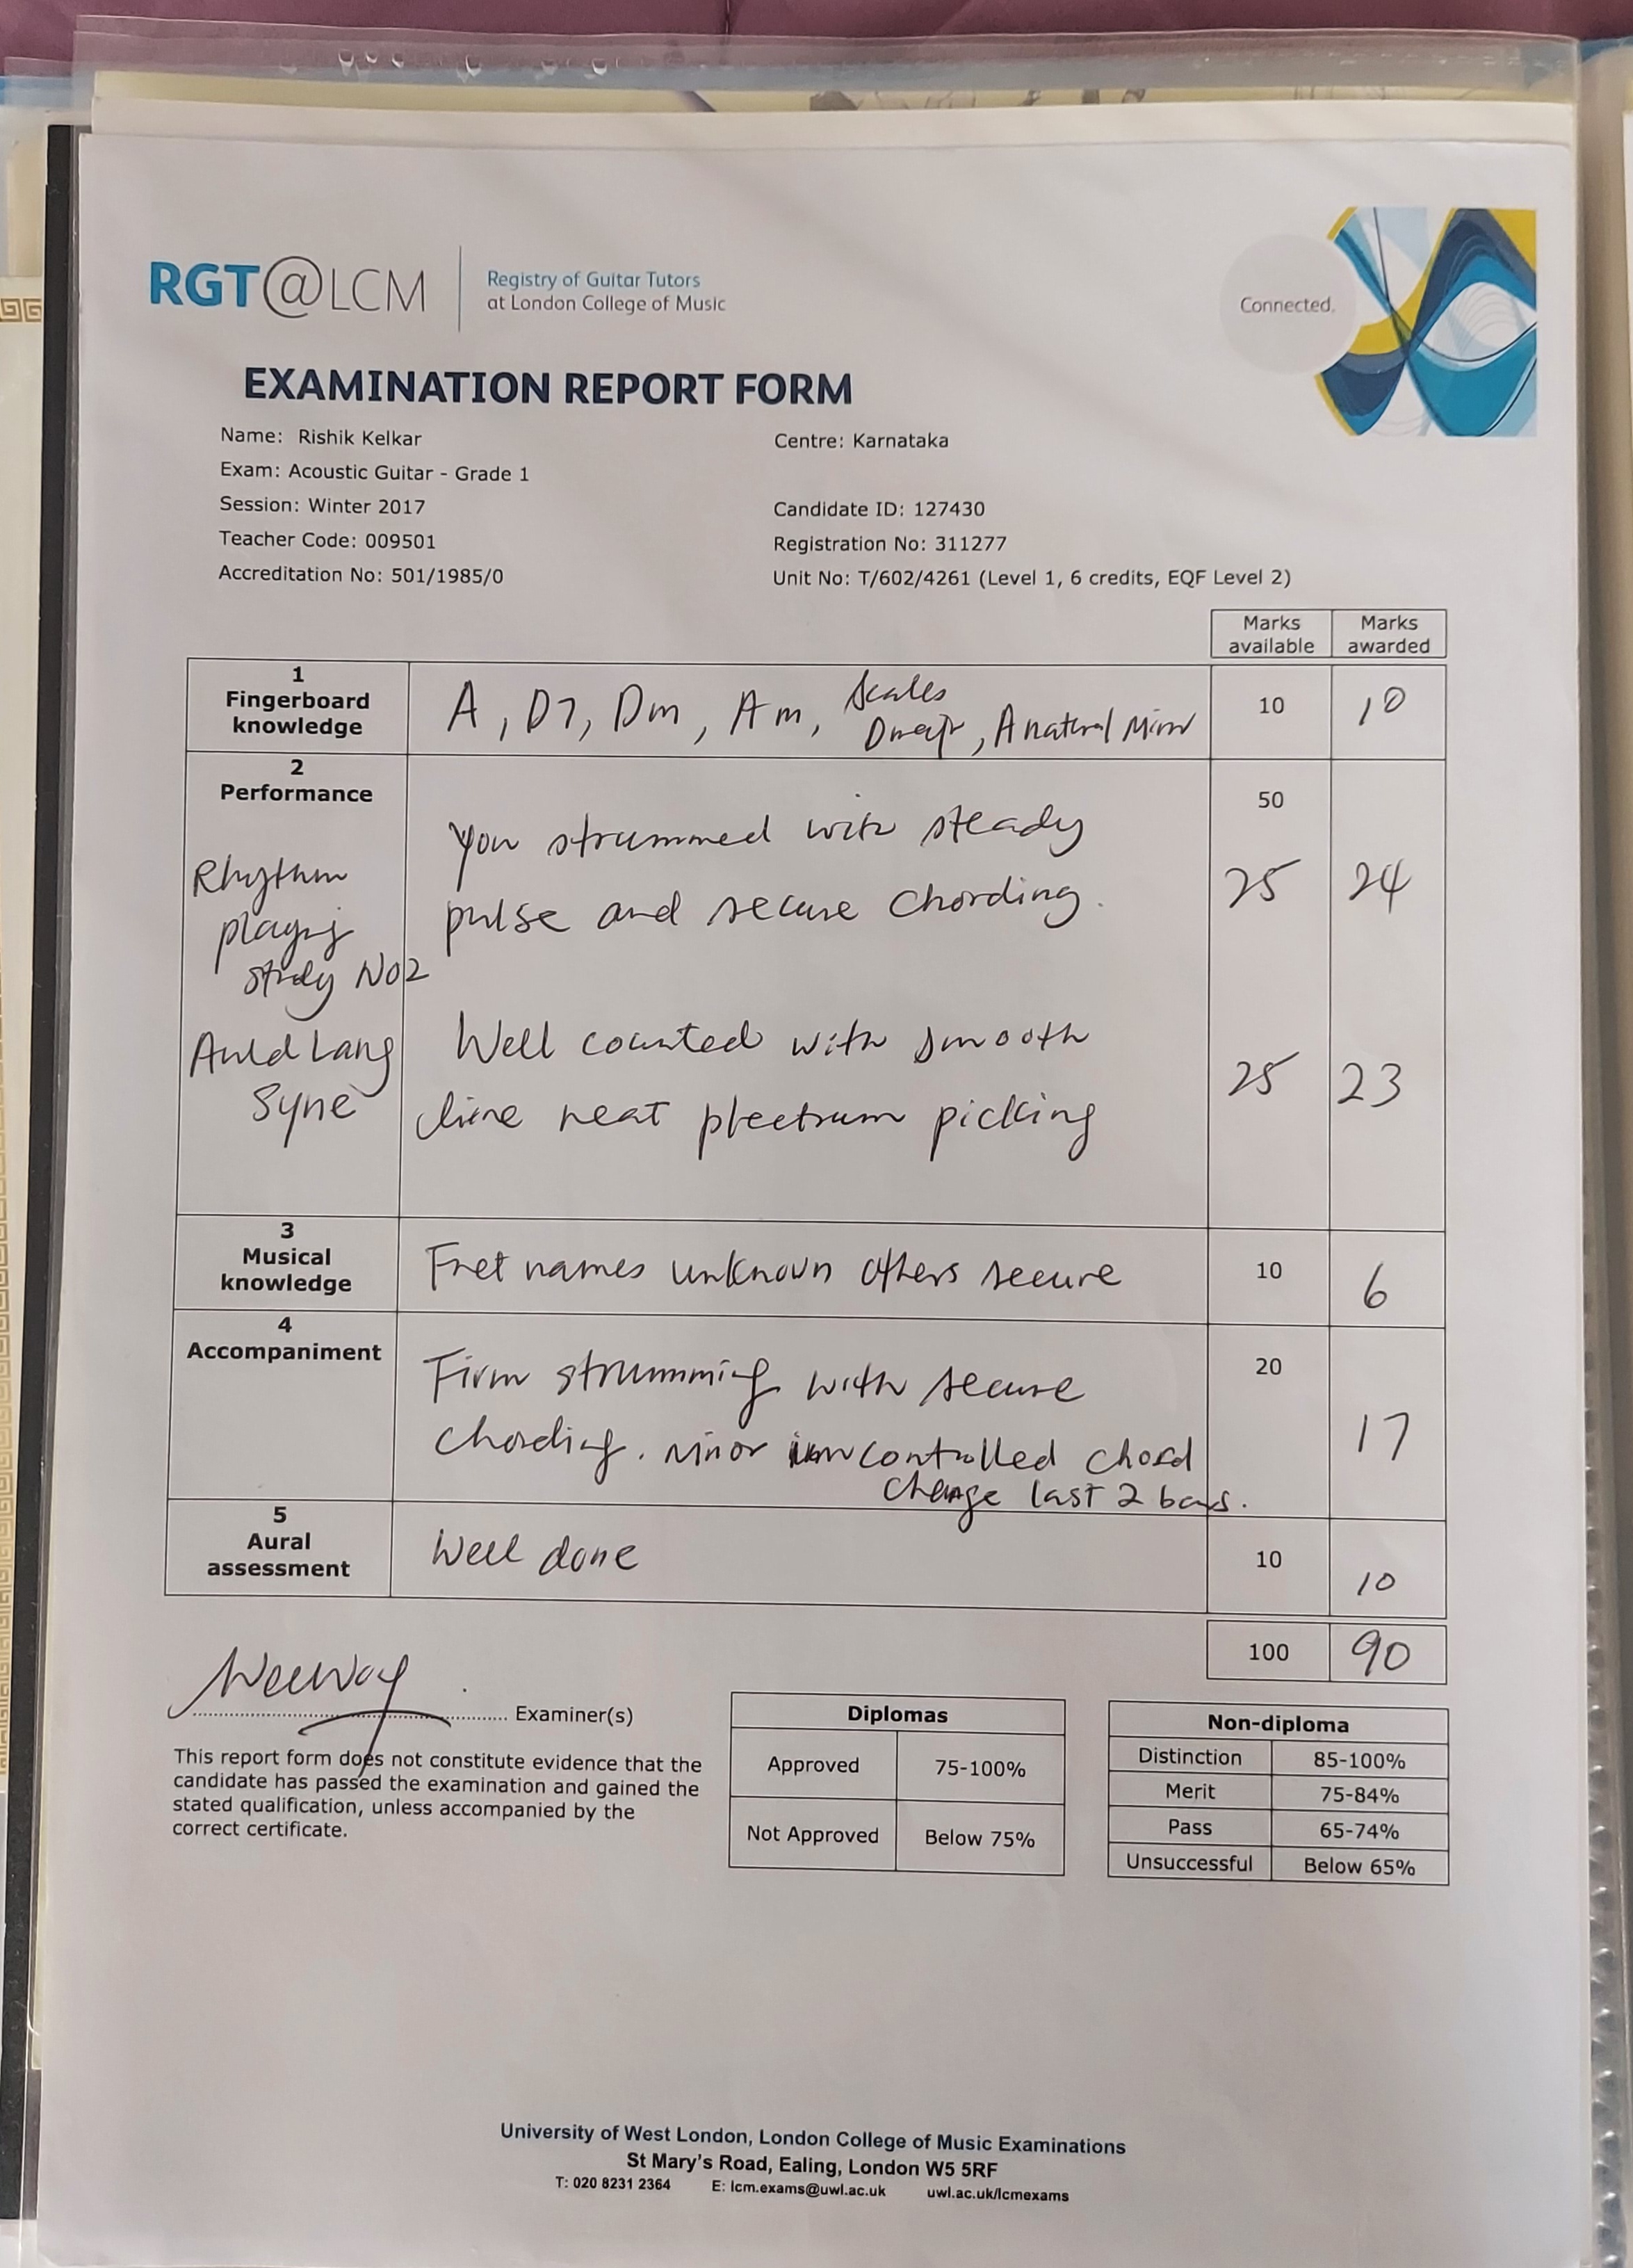 RGT@LCM
Registry of Guitar Tutors
at London College of Music
Connected.
EXAMINATION REPORT FORM
Name: Rishik Kelkar
Centre: Karnataka
Exam: Acoustic Guitar - Grade 1
Session: Winter 2017
Candidate ID: 127430
Teacher Code: 009501
Registration No: 311277
Accreditation No: 501/1985/0
Unit No: T/602/4261 (Level 1, 6 credits, EQF Level 2)
Marks available
Marks awarded
1
Fingerboard knowledge
A, D7, Dm, Am, Scales
D major, A natural Minor
10
10
2
Performance
50
Rhythm
playing
study No2
You strummed with steady
pulse and secure chording.
25
24
Auld Lang
Syne
Well counted with smooth
line neat plectrum picking
25
23
3
Musical knowledge
Fret names unknown others secure
10
6
4
Accompaniment
Firm strumming with secure
chording. Minor uncontrolled chord
change last 2 bars.
20
17
5
Aural assessment
Well done
10
10
100
90
Examiner(s)
This report form does not constitute evidence that the
candidate has passed the examination and gained the
stated qualification, unless accompanied by the
correct certificate.
Diplomas
Approved 75-100%
Not Approved Below 75%
Non-diploma
Distinction 85-100%
Merit 75-84%
Pass 65-74%
Unsuccessful Below 65%
University of West London, London College of Music Examinations
St Mary's Road, Ealing, London W5 5RF
T: 020 8231 2364 E: lcm.exams@uwl.ac.uk uwl.ac.uk/lcmexams